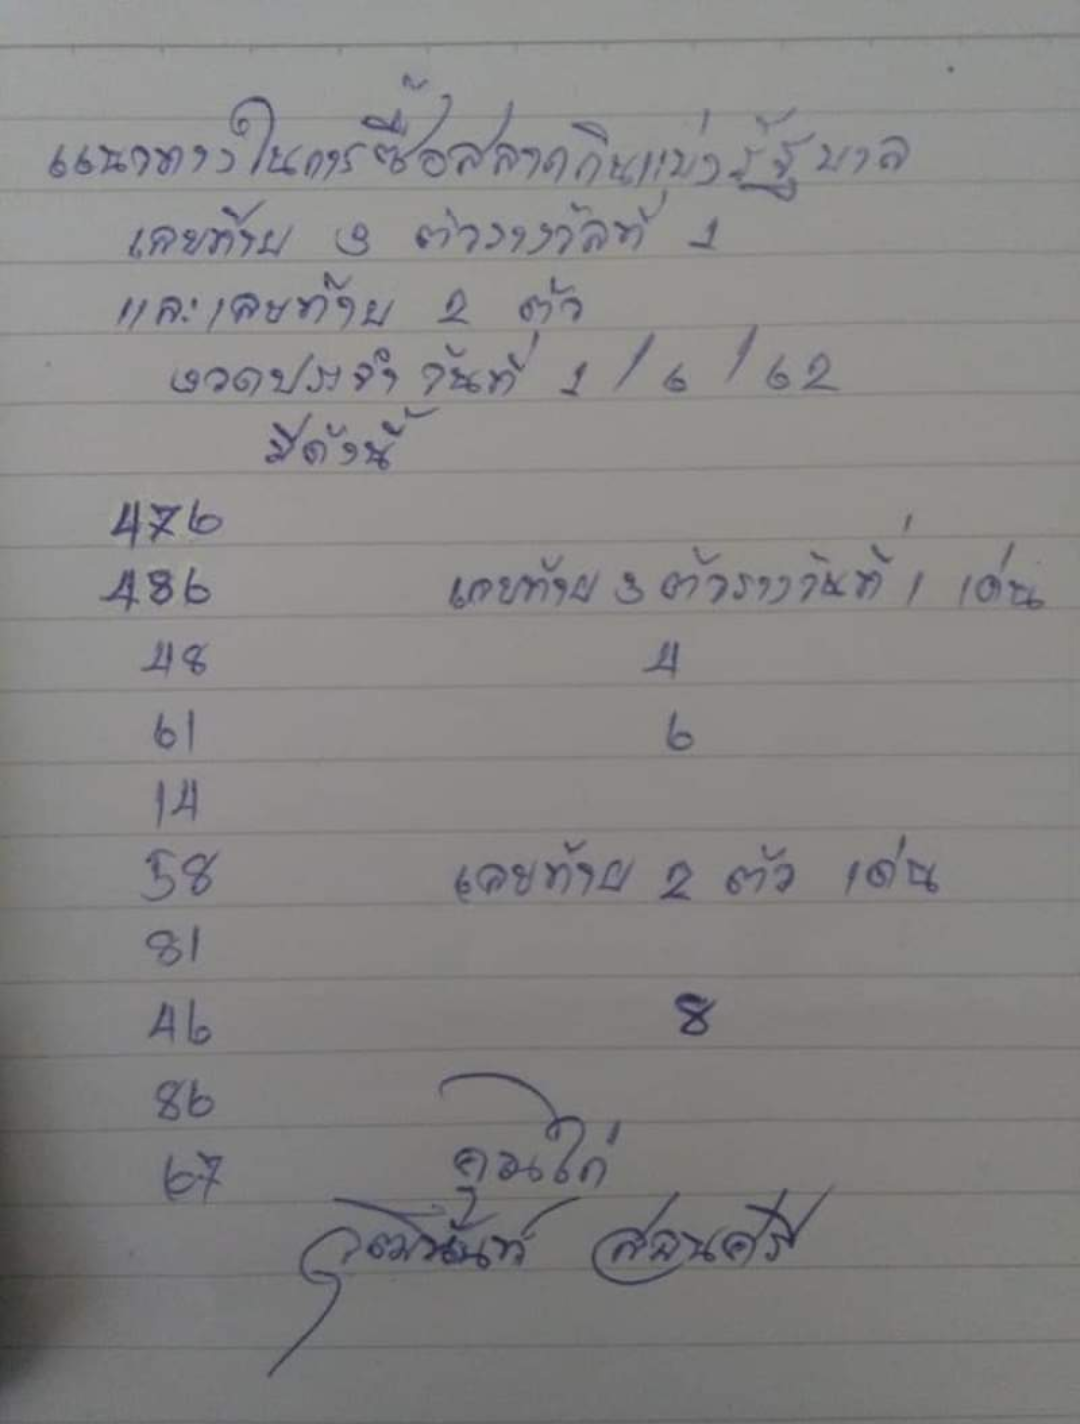 แนวทางในการซื้อสลากกินแบ่งรัฐบาล
เลขท้าย 3 ตัวรางวัลที่ 1
และเลขท้าย 2 ตัว
งวดประจำวันที่ 1/6/62
มีดังนี้
476
486 เลขท้าย 3 ตัวรางวันที่ 1 เด่น
48 4
61 6
14
58 เลขท้าย 2 ตัว เด่น
81
46 8
86
67 คุณไก่
วุฒินันท์ สอนศรี